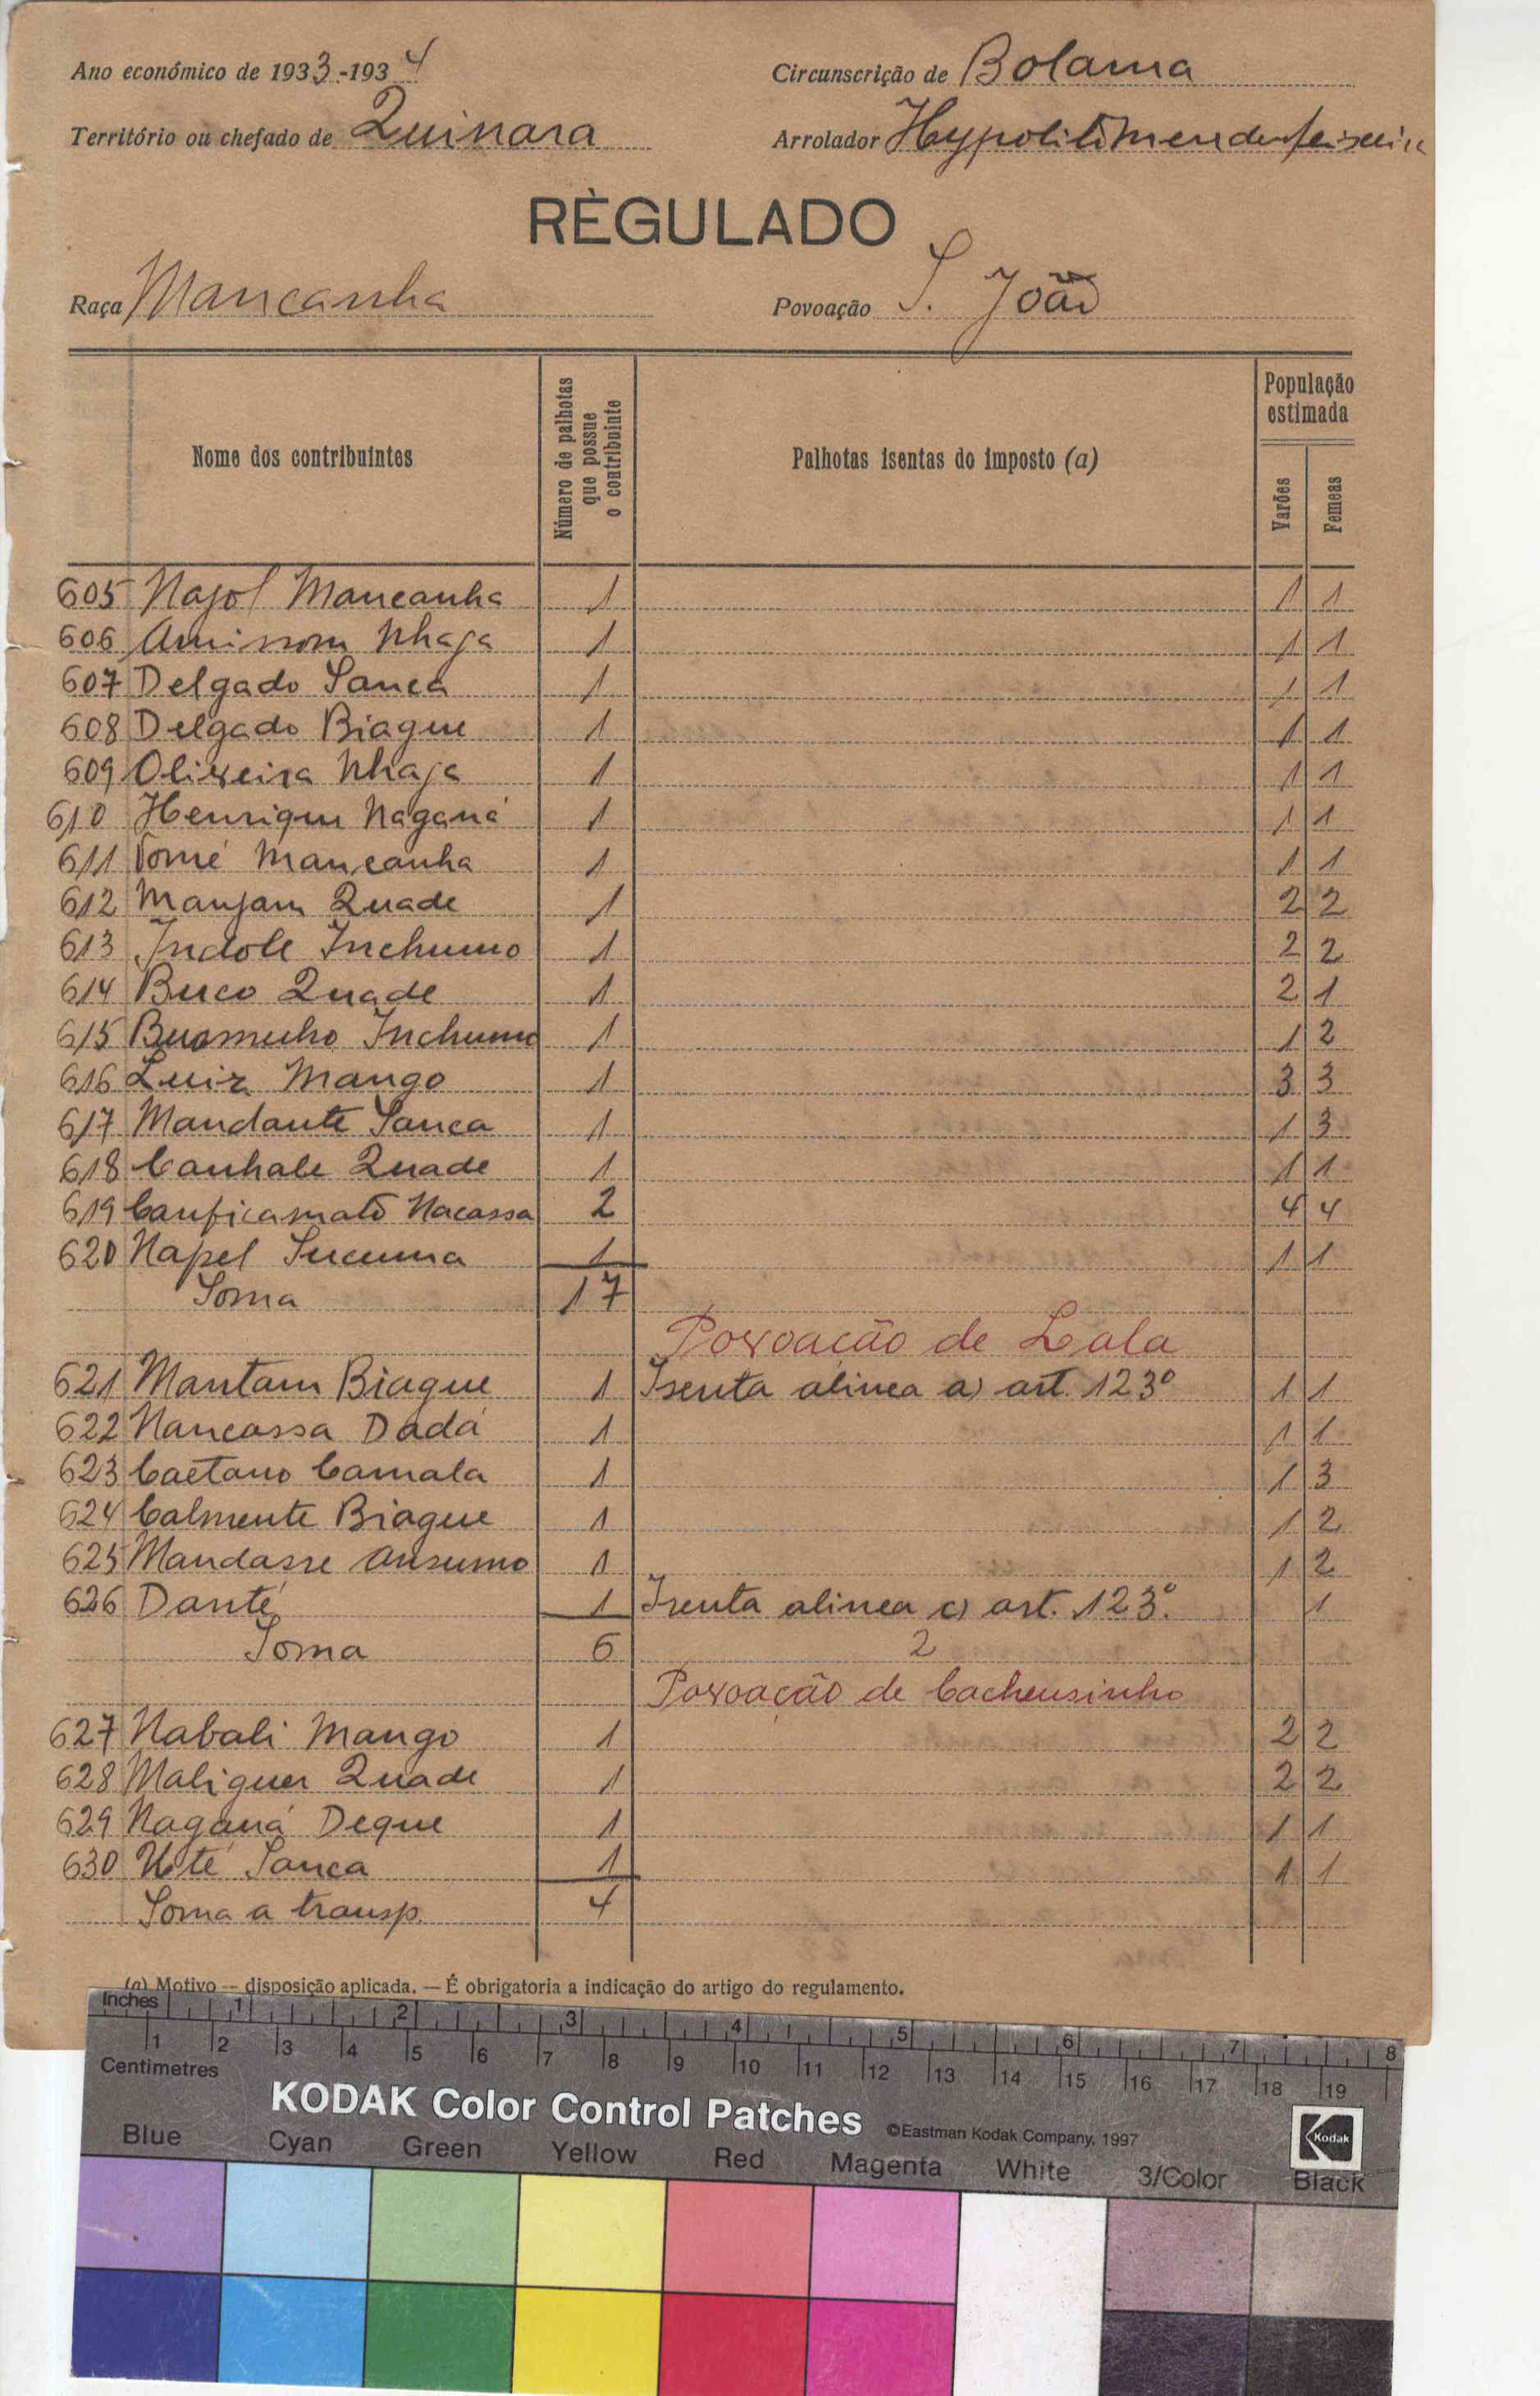 Ano económico de 1933-1934
Circunscrição de Bolama
Território ou chefado de Quinara
Arrolador Hypolito Mendes
RÈGULADO
Raça Mancanha
Povoação S. João
Nome dos contribuintes
Número de palhotas que possue o contribuinte
Palhotas isentas do imposto (a)
População estimada
Varões Femeas
605 Najol Mancanha 1 1 1
606 Nhaja 1 1 1
607 Delgado Sanca 1 1 1
608 Delgado Biague 1 1 1
609 Oliveira Nhaja 1 1 1
610 Henrique Naganá 1 1 1
611 Tomé Mancanha 1 1 1
612 Manjam Quade 1 2 2
613 Indole Inchumo 1 2 2
614 Buco Quade 1 2 1
615 Inchumo 1 1 2
616 Luiz Mango 1 3 3
617 Mandante Sanca 1 1 3
618 Canhale Quade 1 1 1
619 Canficamató Nacassa 2 4 4
620 Napel Sucuma 1 1 1
Soma 17
Povoação de Lala
621 Mantam Biague 1 Isenta alinea a) art. 123º 1 1
622 Nancassa Dadá 1 1 1
623 Caetano Camala 1 1 3
624 Calmente Biague 1 1 2
625 Mandasse Ansumo 1 1 2
626 Danté 1 Isenta alinea c) art. 123º. 1
Soma 6 2
Povoação de Cacheusinho
627 Nabali Mango 1 2 2
628 Maliguer Quade 1 2 2
629 Naganá Deque 1 1 1
630 Sanca 1 1 1
Soma a transp. 4
(a) Motivo — disposição aplicada. — É obrigatoria a indicação do artigo do regulamento.
Inches 1 2 3 4 5 6 7 8
1 2 3 4 5 6 7 8 9 10 11 12 13 14 15 16 17 18 19
Centimetres
KODAK Color Control Patches ©Eastman Kodak Company, 1997 Kodak
Blue Cyan Green Yellow Red Magenta White 3/Color Black